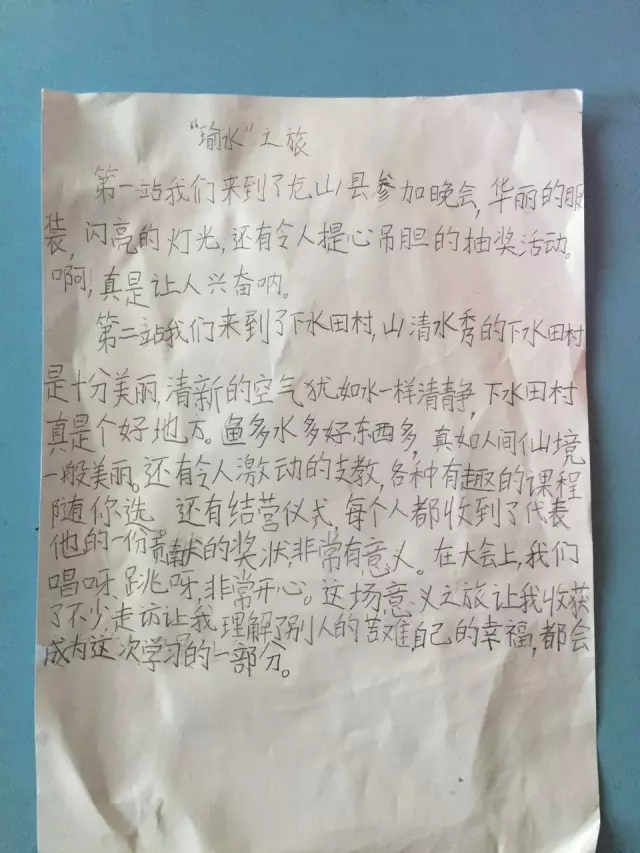 “瑜水”之旅
第一站我们来到了龙山县参加晚会,华丽的服
装,闪亮的灯光,还有令人提心吊胆的抽奖活动。
啊,真是让人兴奋呐。
第二站我们来到了下水田村,山清水秀的下水田村
是十分美丽,清新的空气犹如水一样清静,下水田村
真是个好地方。鱼多水多好东西多,真如人间仙境
一般美丽。还有令人激动的支教,各种有趣的课程
随你选 还有结营仪式,每个人都收到了代表
他的一份贡献的奖状,非常有意义。在大会上,我们
唱呀,跳呀,非常开心。这场意义之旅让我收获
了不少走访让我理解了别人的苦难自己的幸福,都会
成为这次学习的一部分。